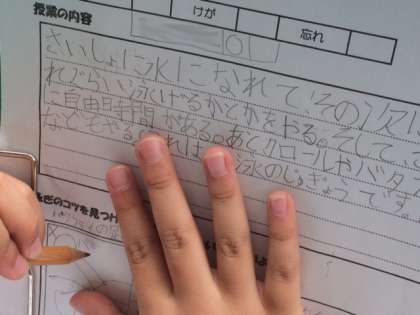 授業の内容
けが
忘れ
さいしょに水になれて その次に
れぐらい泳げるかとかをやる。そして、さ
に自由時間がある。あとクロールやバタ
などもやる。これは 水泳のじゅぎょうです。
ぎのコツを見つけ